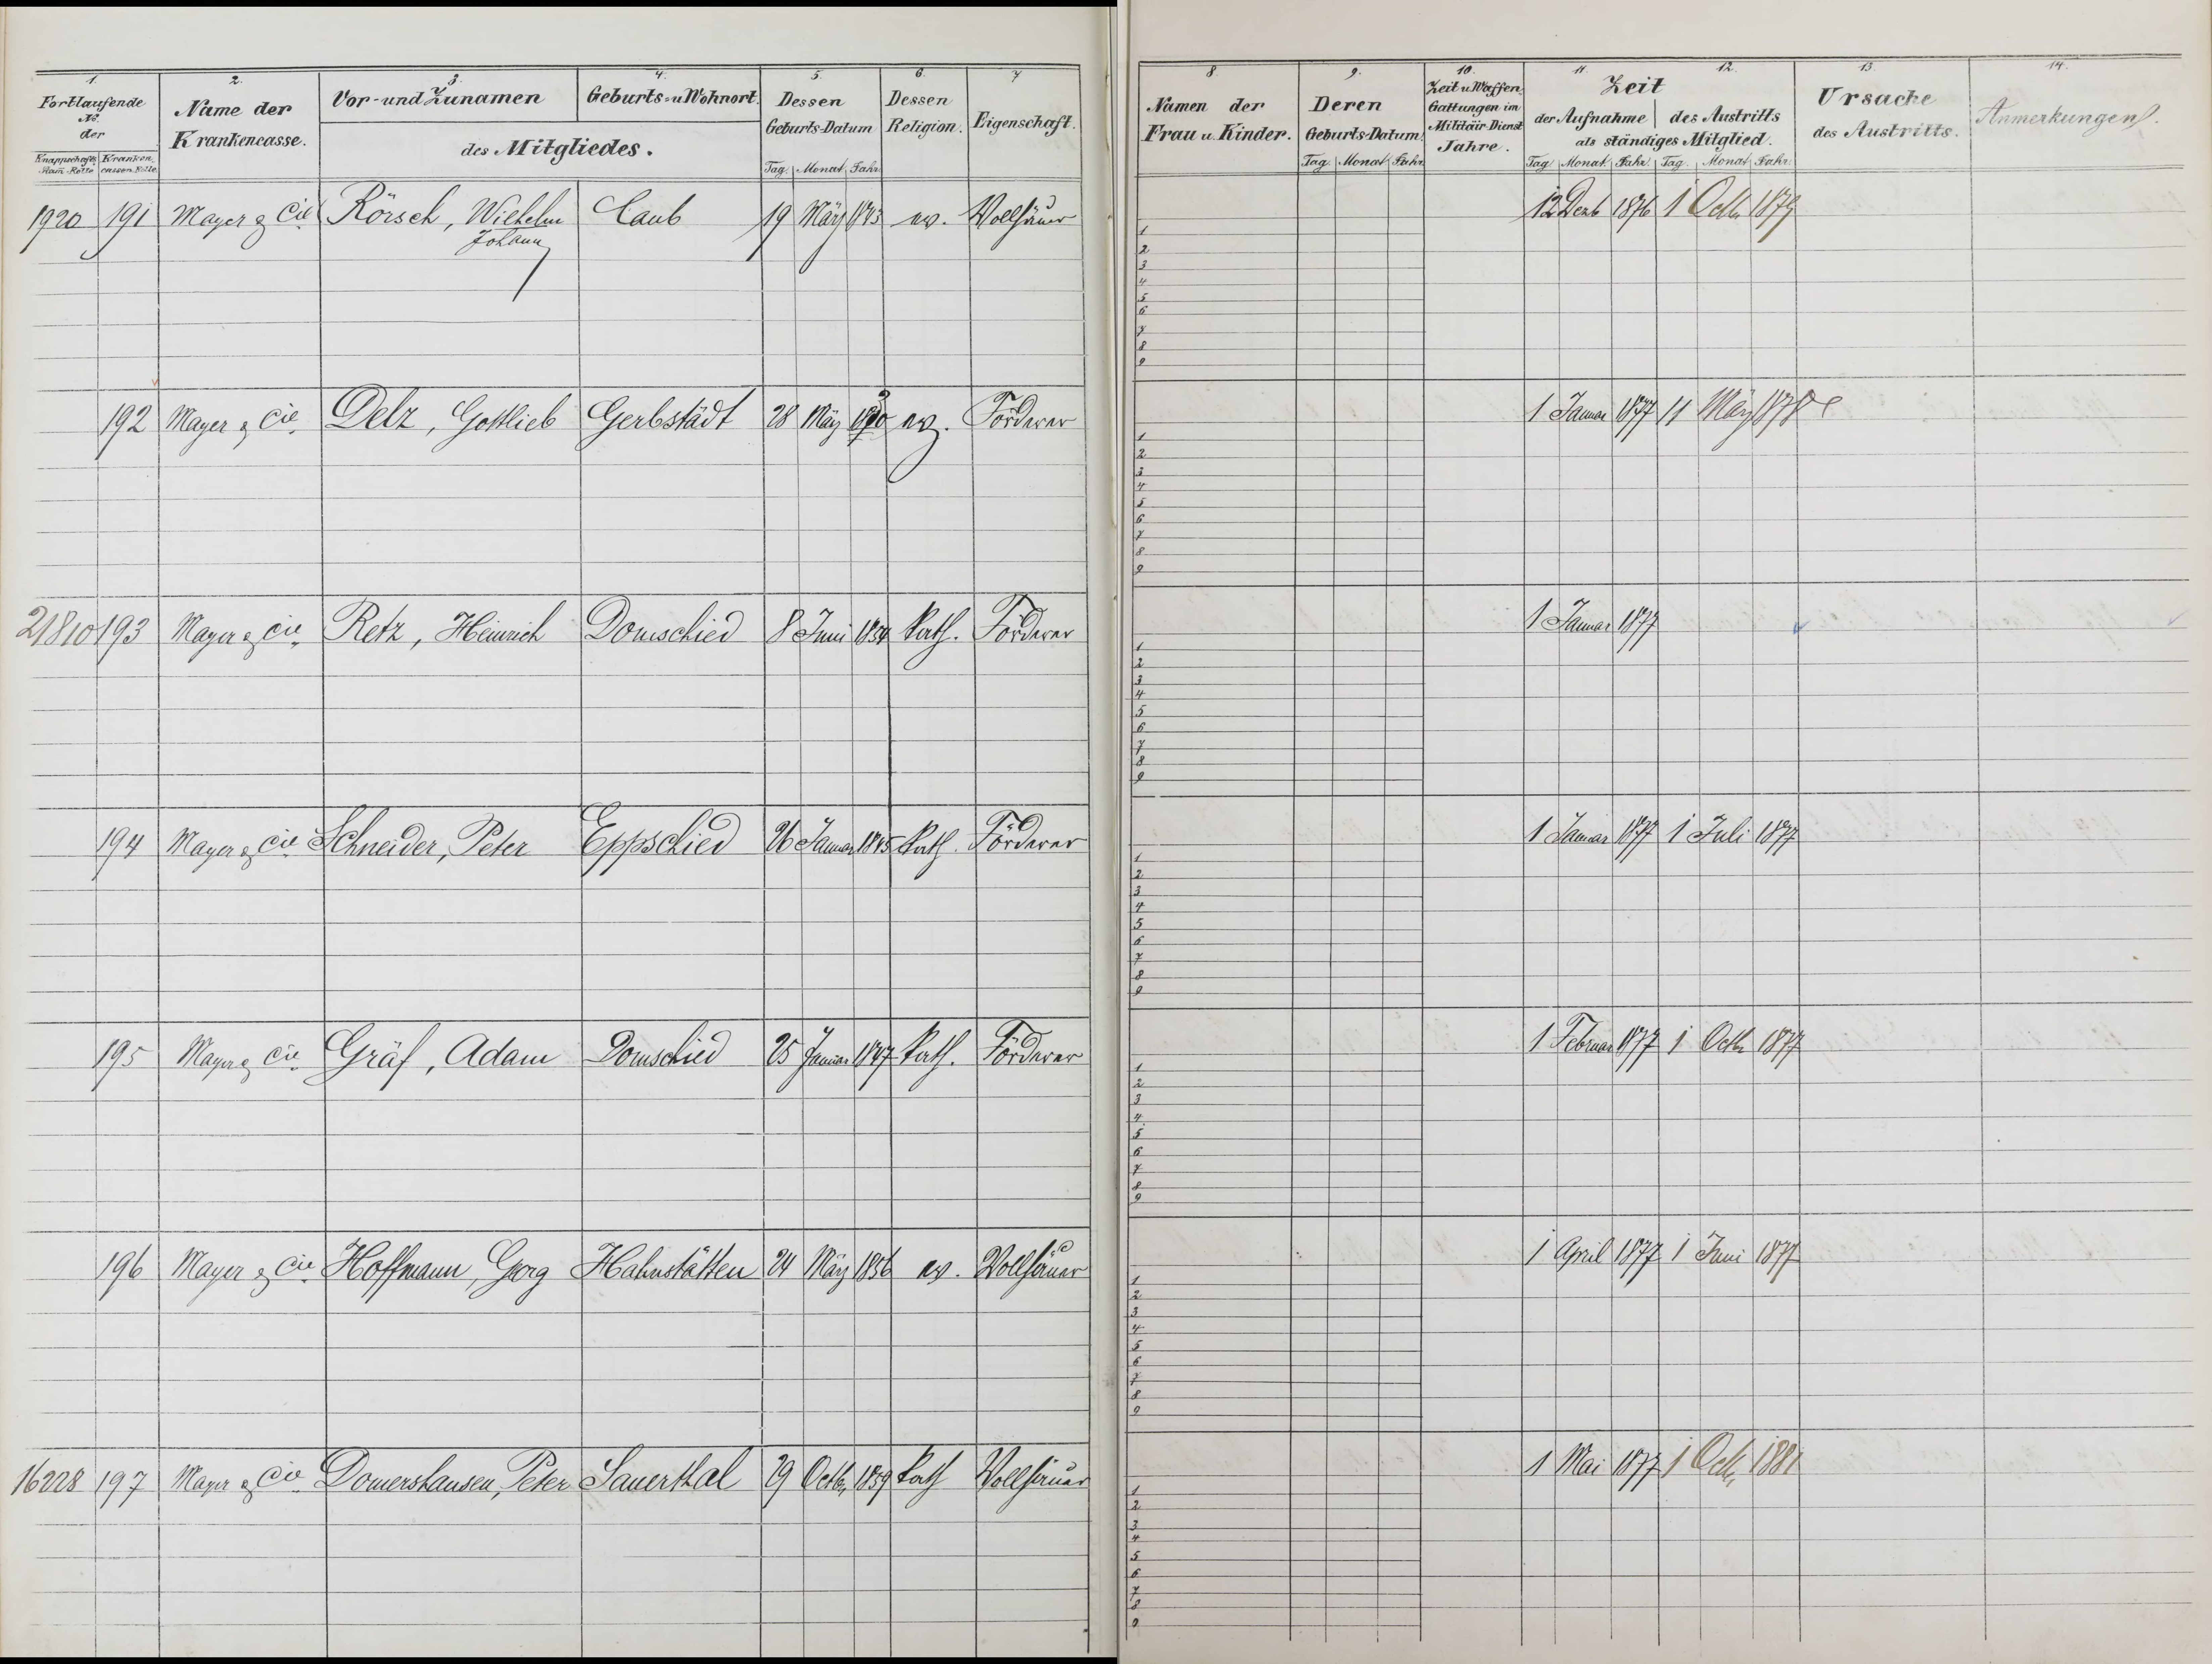 1. 2. 3. 4. 5. 6. 7 8. 9. 10. 11. 12. 13. 14.
Fortlaufende № der
Knappschafts Stam. Rolle Krankencassen Rolle
Name der Krankencasse.
Vor- und Zunamen Geburts- u Wohnort.
des Mitgliedes.
Dessen Geburts-Datum
Tag. Monat Jahr
Dessen Religion.
Eigenschaft.
Namen der Frau u. Kinder.
Deren Geburts-Datum.
Tag Monat Jahr
Zeit u Waffen Gattungen im Militäir-Dienst Jahre.
Zeit
der Aufnahme des Austritts
als ständiges Mitglied.
Tag Monat Jahr. Tag. Monat Jahr.
Ursache des Austritts.
Anmerkungen.
1920 191 Mayer & Cie Rörsch, Wilhelm Caub 19 März 1843 ev. Vollhäuer 12 Dezb 1876 1 Octb. 1879
Johann
1
2
3
4
5
6
7
8
9
192 Mayer & Cie. Delz, Gottlieb Gerbstädt 28 März ev. Förderer 1 Januar 1877 11 März 1878
1
2
3
4
5
6
7
8
9
21810 193 Mayer & Cie. Retz, Heinrich Domschied 8 Juni 1854 kath. Förderer 1 Januar 1877
1
2
3
4
5
6
7
8
9
194 Mayer & Cie. Schneider, Peter Eppschied 26 Januar 1845 kath. Förderer 1 Januar 1877 1 Juli 1877
1
2
3
4
5
6
7
8
9
195 Mayer & Cie. Gräf, Adam Domschied 25 Januar 1847 kath. Förderer 1 Februar 1877 1 Octb. 1877
1
2
3
4
5
6
7
8
9
196 Mayer & Cie. Hoffmann, Georg Hahnstätten 24 März 1856 ev. Vollhäuer 1 April 1877 1 Juni 1877
1
2
3
4
5
6
7
8
9
16228 197 Mayer & Cie. Domershausen, Peter Sauerthal 29 Octb. 1859 kath Vollhäuer 1 Mai 1877 1 Octb. 1881
1
2
3
4
5
6
7
8
9